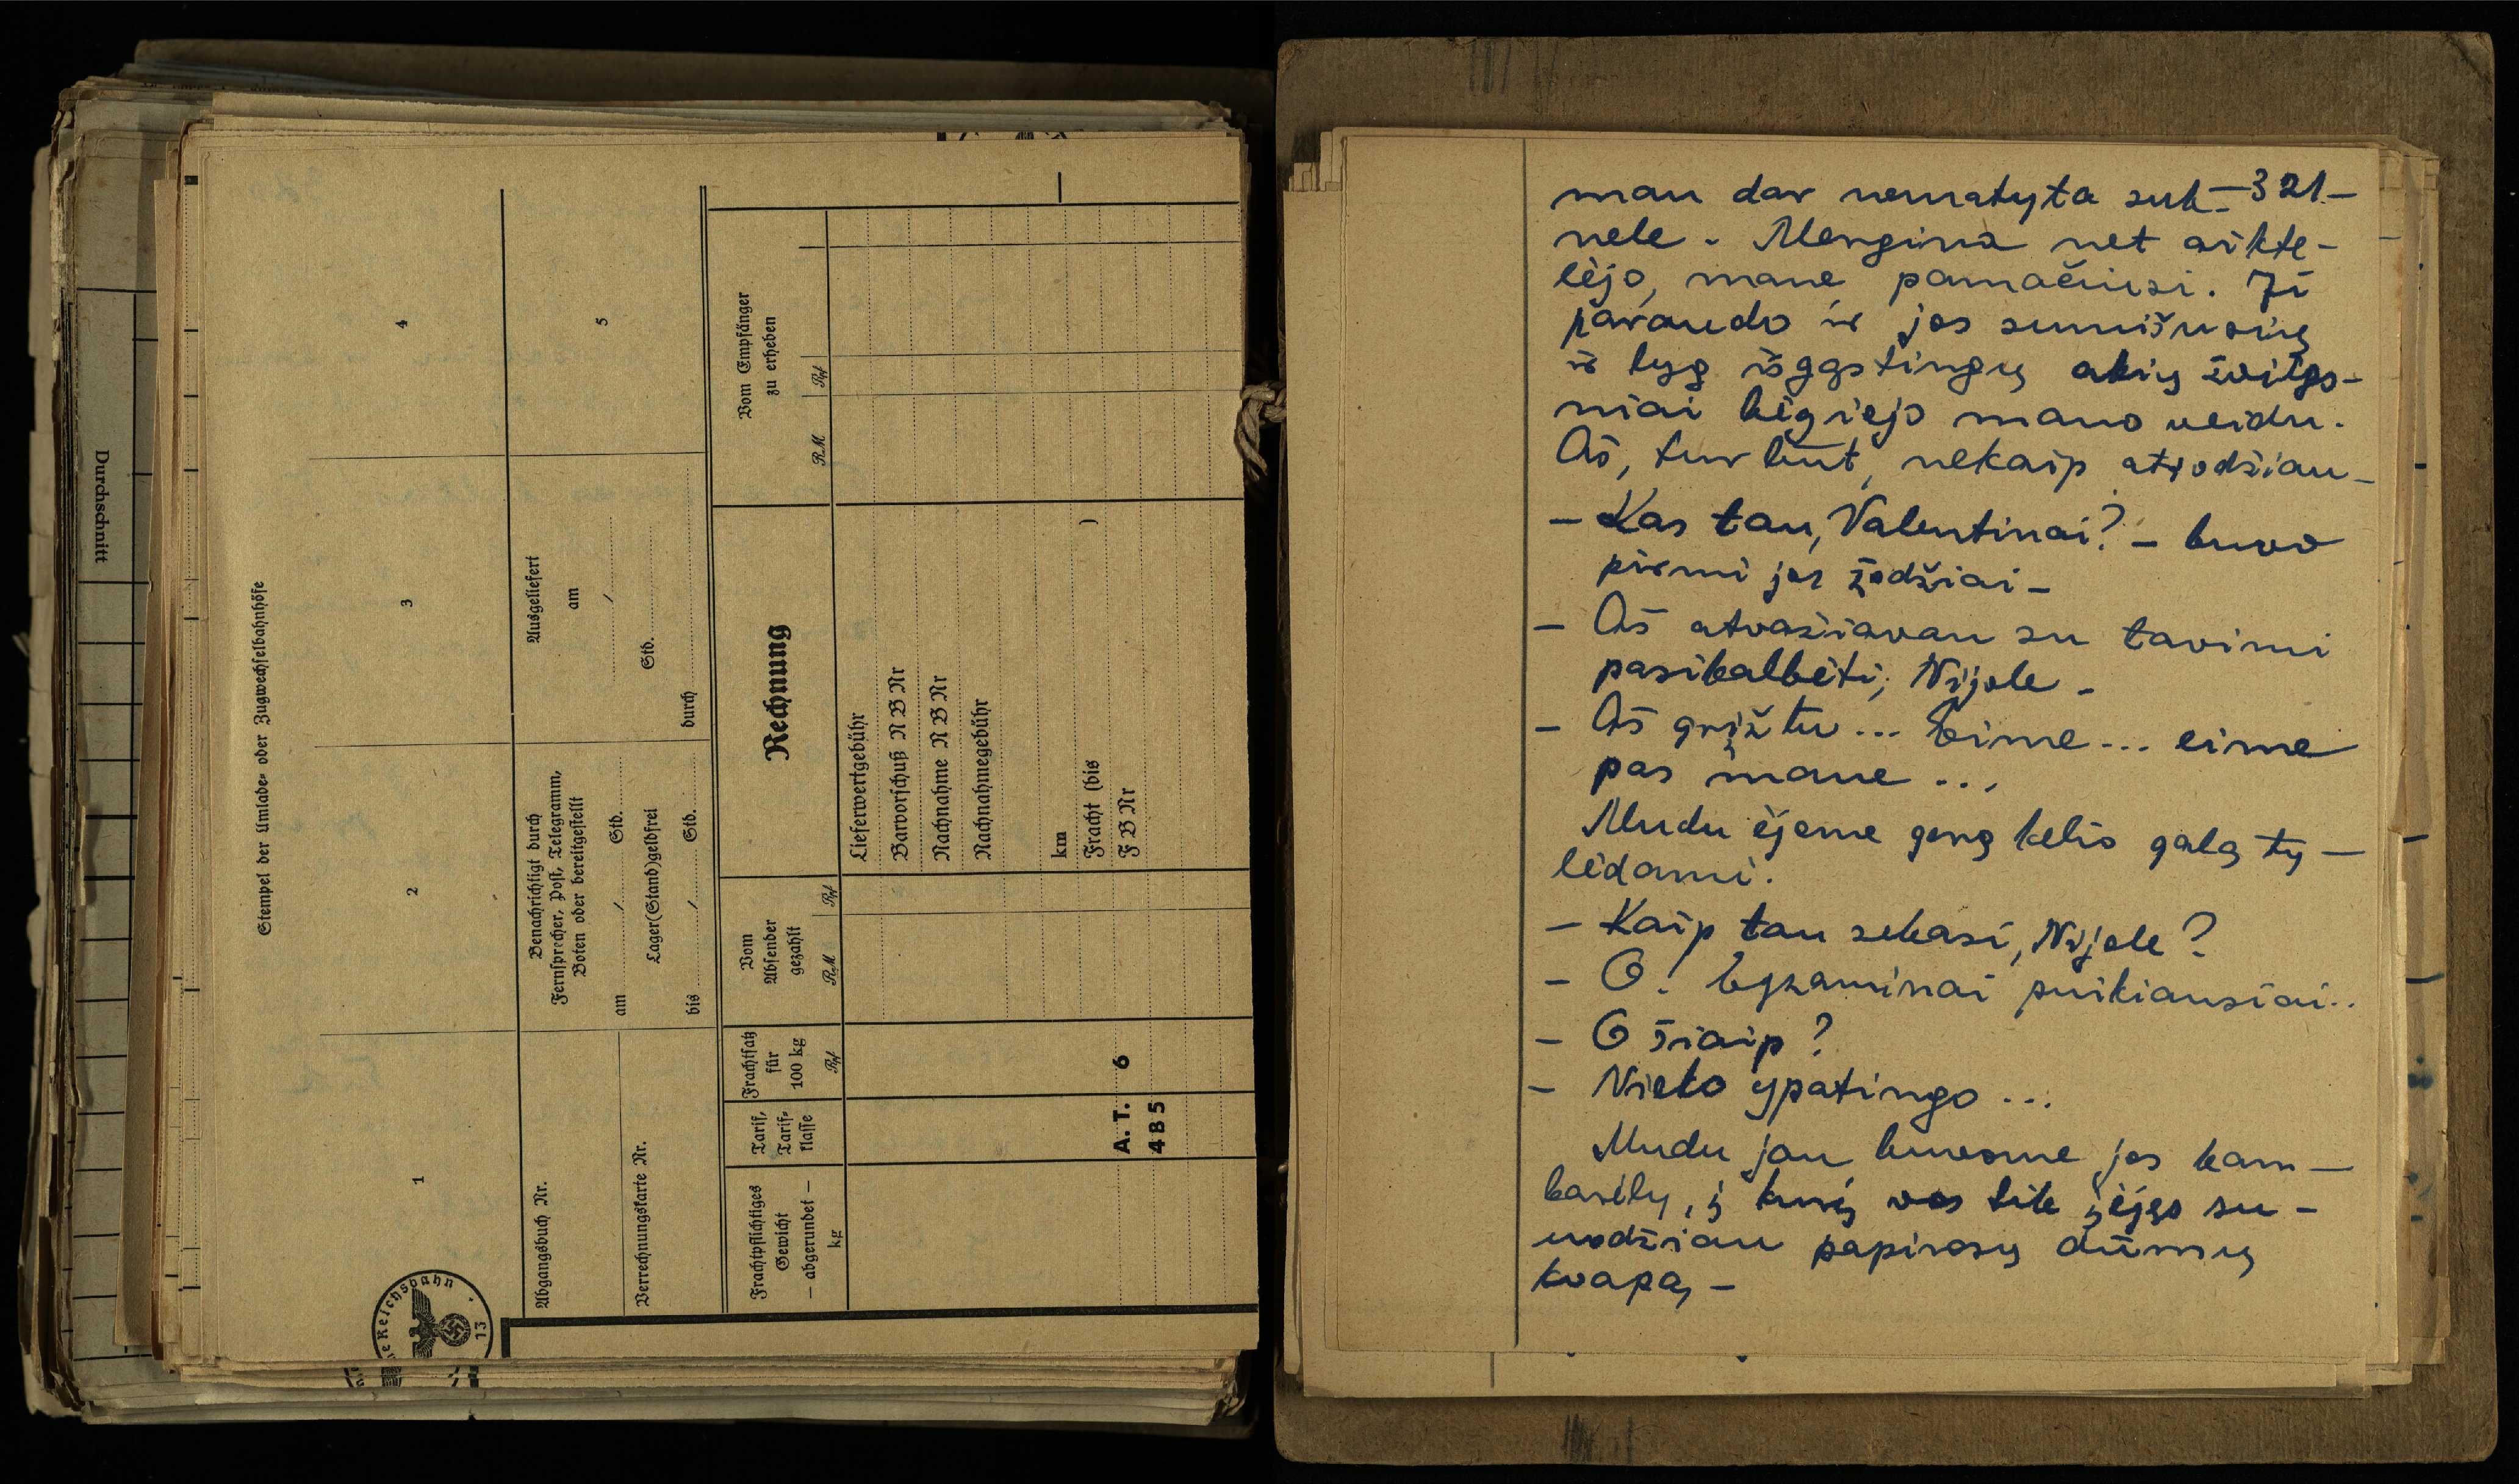 Durchschnitt
Stempel der Umlade- oder Zugwechselbahnhöfe
1
2
3
4
Abgangsbuch Nr.
Verrechnungskarte Nr.
Benachrichtigt durch
Fernsprecher, Post, Telegramm,
Boten oder bereitgestellt
am / Std.
Lager(Stand)geldfrei
bis / Std.
Ausgeliefert
am
/
Std.
durch
5
Frachtpflichtiges
Gewicht
— abgerundet —
kg
Tarif,
Tarif-
klasse
Frachtsatz
für
100 kg
Rpf
Vom
Absender
gezahlt
RM Rpf
Rechnung
Vom Empfänger
zu erheben
RM Rpf
Lieferwertgebühr
Barvorschuß N B Nr
Nachnahme N B Nr
Nachnahmegebühr
km
Fracht (bis )
F B Nr
A. T. 6
4 B 5
e Reichsbahn
13
man dar nematyta suk- —321.—
nele. Mergina net aikte-
lėjo, mane pamačiusi. Ji
paraudo ir jos sumišusių
ir lyg išgąstingų akių žvilgs-
niai bėgiojo mano veidu.
Aš, turbūt, nekaip atrodžiau.
— Kas tau, Valentinai? — buvo
pirmi jos žodžiai.
— Aš atvažiavau su tavimi
pasikalbėti, Nijole.
— Aš grįžtu... Eime... eime
pas mane...
Mudu ėjome gerą kelio galą ty-
lėdami.
— Kaip tau sekasi, Nijole?
— O! Egzaminai puikiausiai..
— O šiaip?
— Nieko ypatingo...
Mudu jau buvome jos kam-
barėly, į kurį vos tik įėjęs su-
uodžiau papirosų dūmų
kvapą.